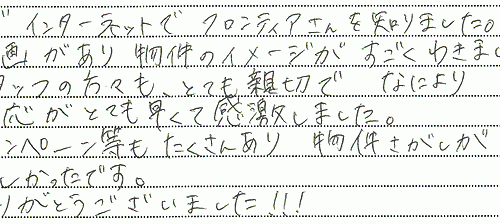 インターネットで フロンティアさんを知りました。
画があり 物件のイメージが すごくわきまし
タッフの方々も、とても親切で なにより
応がとても早くて感激しました。
ンペーン等も たくさんあり 物件さがしが
しかったです。
りがとうございました!!!